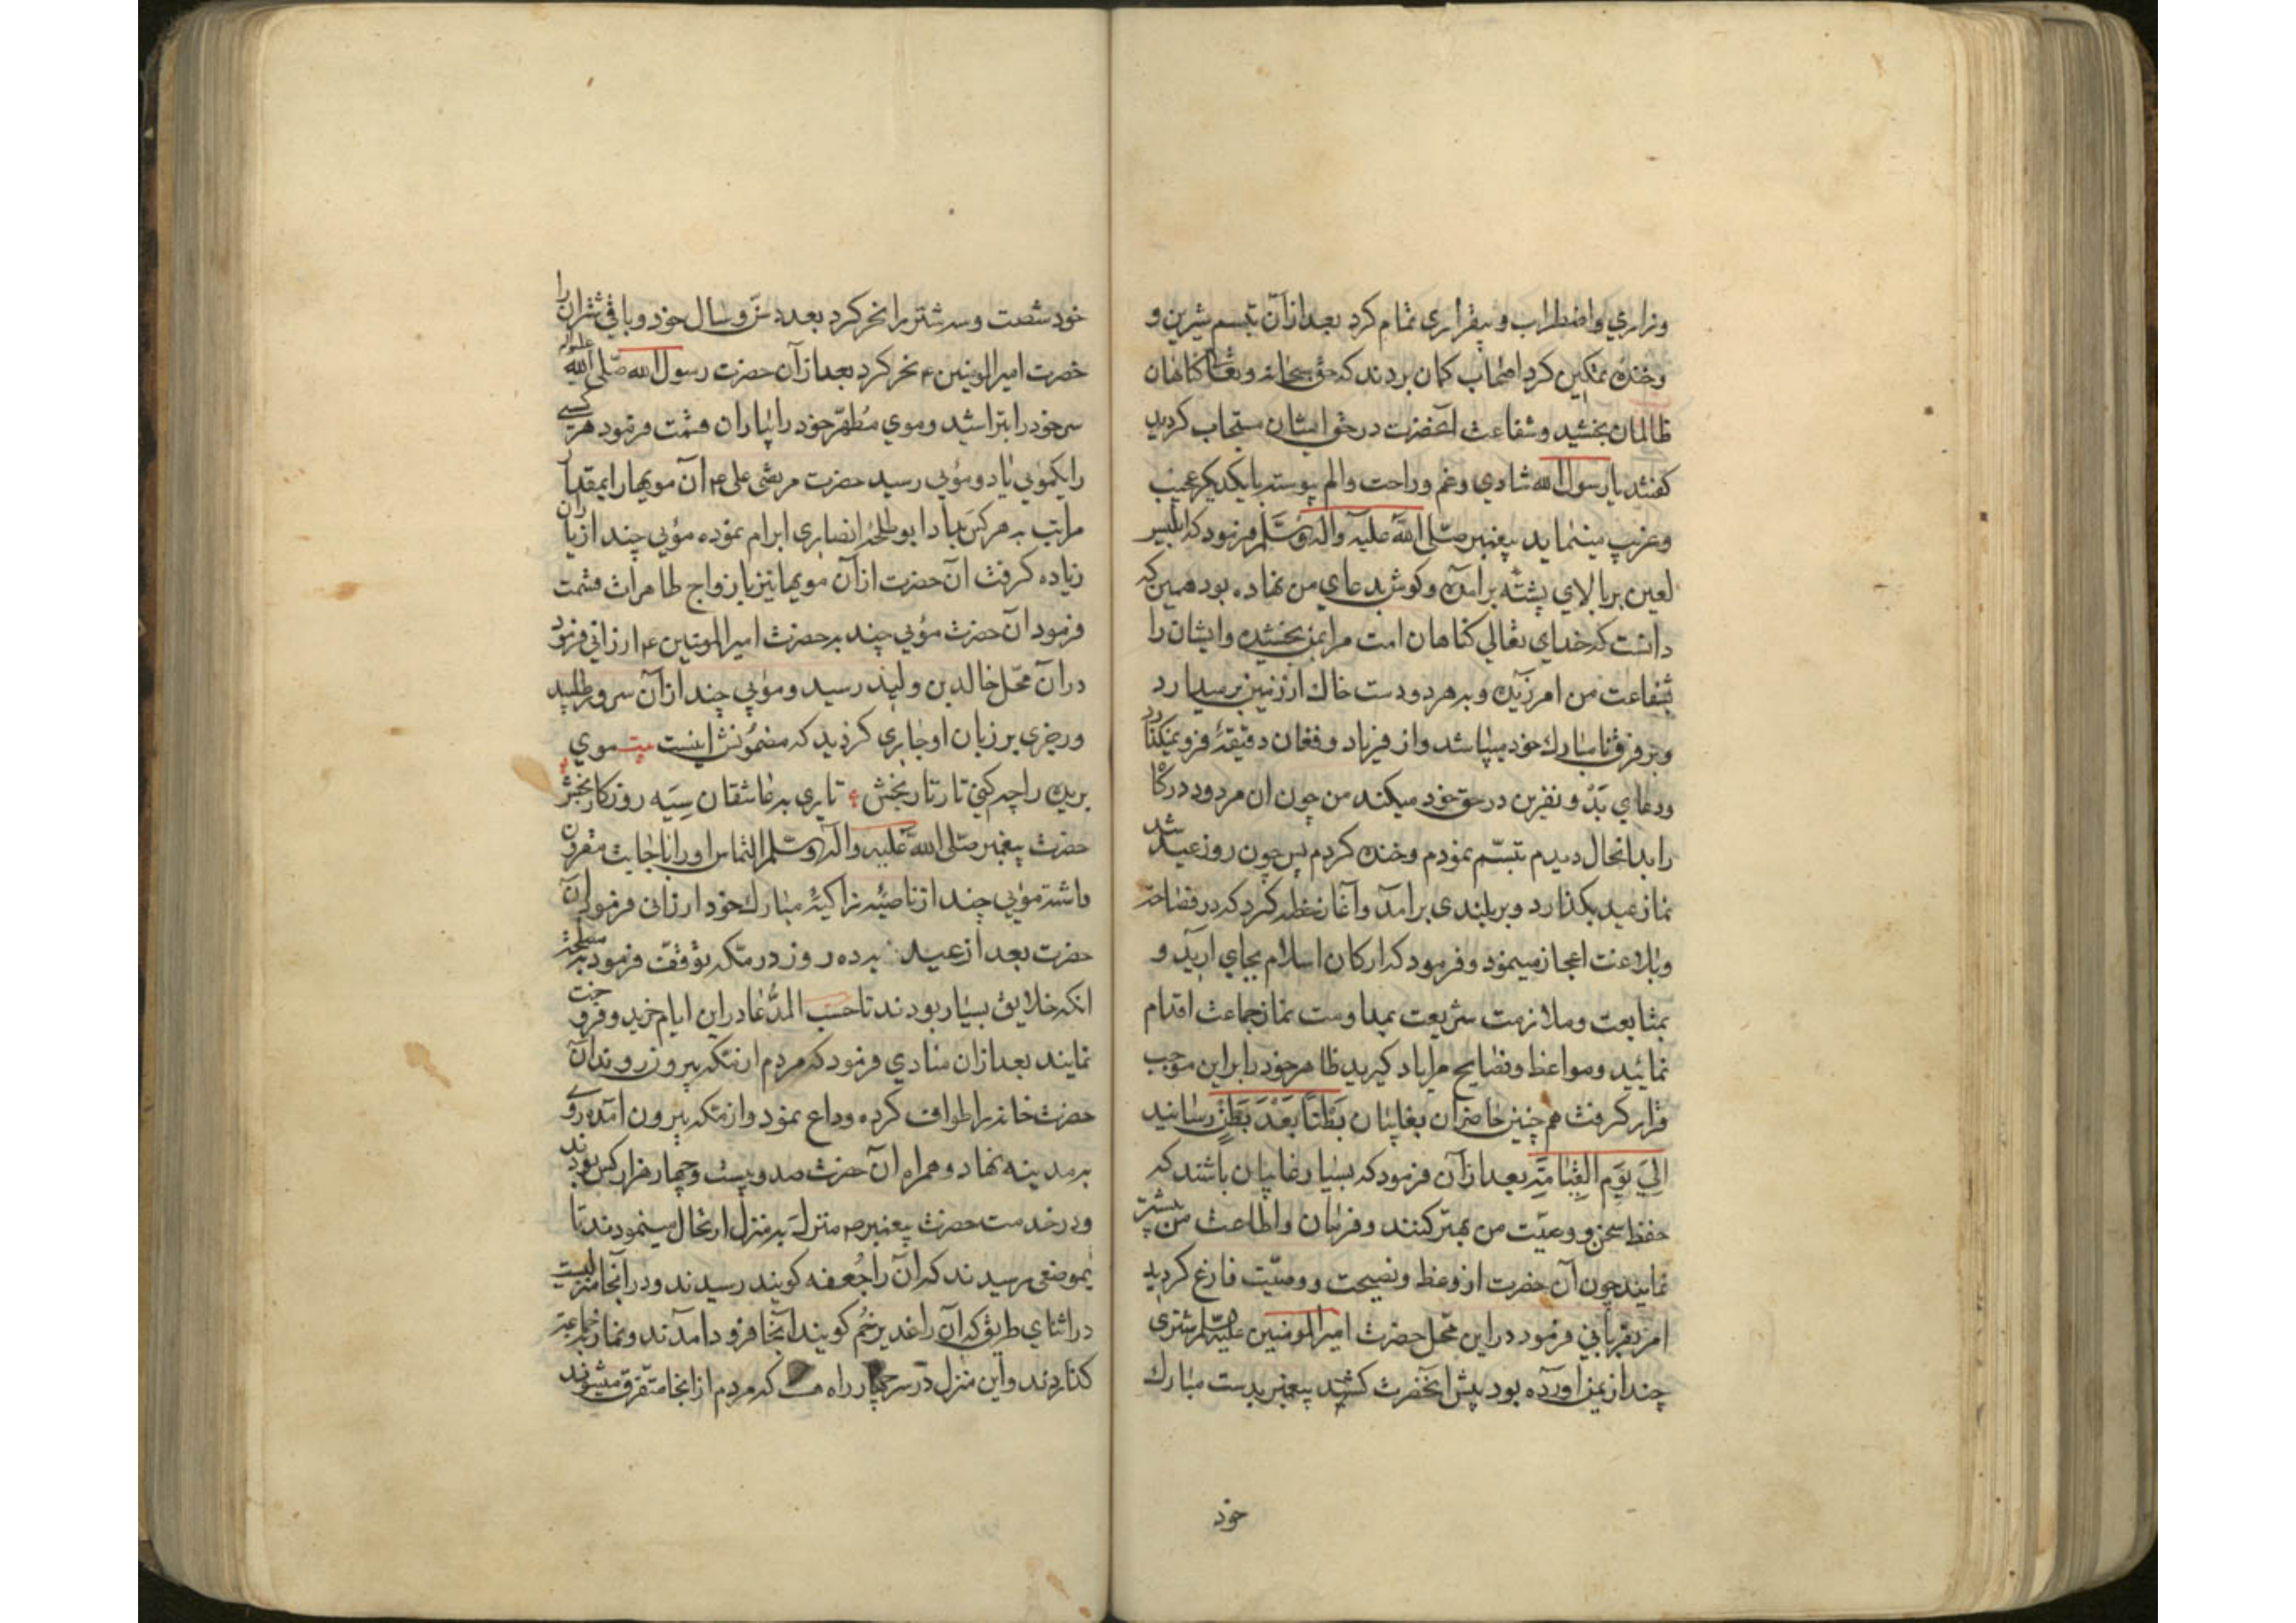 وزاري واضطراب و بيقراري تمام كرد بعد ازآن تبسم شيرين و
وخنده نمكين كرد اصحاب كمان بردند كه حق سبحانه وتعالى كناهان
ظالمان بخشيد وشفاعت آنحضرت در حق ايشان مستجاب كرديد
كفتند يا رسول الله شادي وغم وراحت والم پيوسته بايكديكر عجيب
وغريب مينمايد پيغمبر صلى الله عليه وآله وسلم فرمود كه ابليس
لعين بر بالاي پشته برآمده وكوش بدعاي من نهاده بود همين كه
دانست كه خداي تعالي كناهان امت مرا بمن بخشيده وايشان را
بشفاعت من امرزيده وبه هر دو دست خاك از زمين برميدارد
وبر فرق نامبارك خود ميپاشد واز فرياد وفغان دقيقهٔ فرو نميكذارد
ودعاي بد و نفرين در حق خود ميكند من چون ان مردود دركاه
را بدانحال ديدم تبسم نمودم وخنده كردم پس چون روز عيد شد
نماز عيد بكذارد وبر بلندى برامد وآغاز خطبه كرد كه در فصاحت
وبلاغت اعجاز مينمود وفرمود كه اركان اسلام بجاي آريد و
بمتابعت وملازمت شريعت بمداومت نماز جماعت اقدام
نمائيد ومواعظ ونصايح مرا ياد كيريد ظاهر خود را براين موجب
قرار كرفت هم چنين حاضران بغايبان بَطْنًا بَعْدَ بَطْنٍ رسانيد
اِلىَ يَوْمِ القِيَامَةِ بعد ازآن فرمود كه بسيار غايبان باشند كه
حفظ سخن و وصيّت من بهتر كنند وفرمان واطاعت من بيشتر
نمايند چون آن حضرت از وعظ ونصيحت و وصيّت فارغ كرديد
امر بقرباني فرمود در اين محل حضرت امير المومنين عليه السلم شترى
چند از يمن اورده بود پيش آنحضرت كشيد پيغمبر بدست مبارك
خود
خود شصت وسه شتر را نحر كرد بعدد سن وسال خود وباقي شتران را
حضرت امير المومنين ع نحر كرد بعد ازآن حضرت رسول الله صلى الله عليه واله
سر خود را بتراشيد وموي مُطَهّر خود را بياران قسمت فرمود هر كسى
را يكموئي يا دو موئي رسيد حضرت مرتضى على ع ان مويها را بمقدار
مراتب به هر كس ميداد ابو طلحهٔ انصارى ابرام نموده موئي چند از ياران
زياده كرفت آن حضرت ازآن مويها نيز بازواج طاهرات قسمت
فرمود ان حضرت موئي چند به حضرت امير المومنين ع ارزاني فرمود
در آن محل خالد بن وليد رسيد وموئي چند از آن سرور طلبيد
ورجزى بر زبان او جارى كرديد كه مضمونش اينست بيت موي
بريده را چه كني تار تار بخش تارى به عاشقان سيه روزكار بخش
حضرت پيغمبر صلى الله عليه واله وسلم التماس او را باجابت مقرون
داشته موئي چند از ناصيهٔ زاكيهٔ مبارك خود ارزانى فرمود ان
حضرت بعد از عيد ده روز در مكه توقف فرمود بمصلحت
انكه خلايق بسيار بودند تا حسب المدعا در اين ايام خريد وفروخت
نمايند بعد ازان منادي فرمود كه مردم از مكه بيرون روند آن
حضرت خانه را طواف كرده وداع نمود واز مكه بيرون امده روي
به مدينه نهاد وهمراه آن حضرت صد وبيست وچهار هزار كس بودند
ودر خدمت حضرت پيغمبر ص منزل به منزل ارتحال مينمودند تا
بموضعى رسيدند كه آن را جُحفه كويند رسيدند ودر آنجا منزليست
در اثناي طريق كه آن را غدير خُم كويند آنجا فرود امدند ونماز بجماعت
كذاردند واين منزل در سر چهار راه كه مردم از انجا متفرق ميشوند